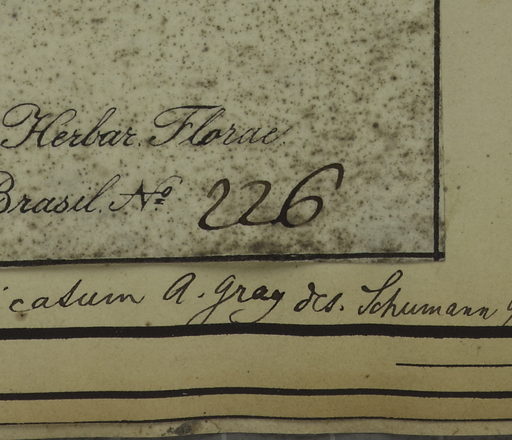 Herbar. Florae
Brasil. Nº 226
icatum A. Gray des. Schumann